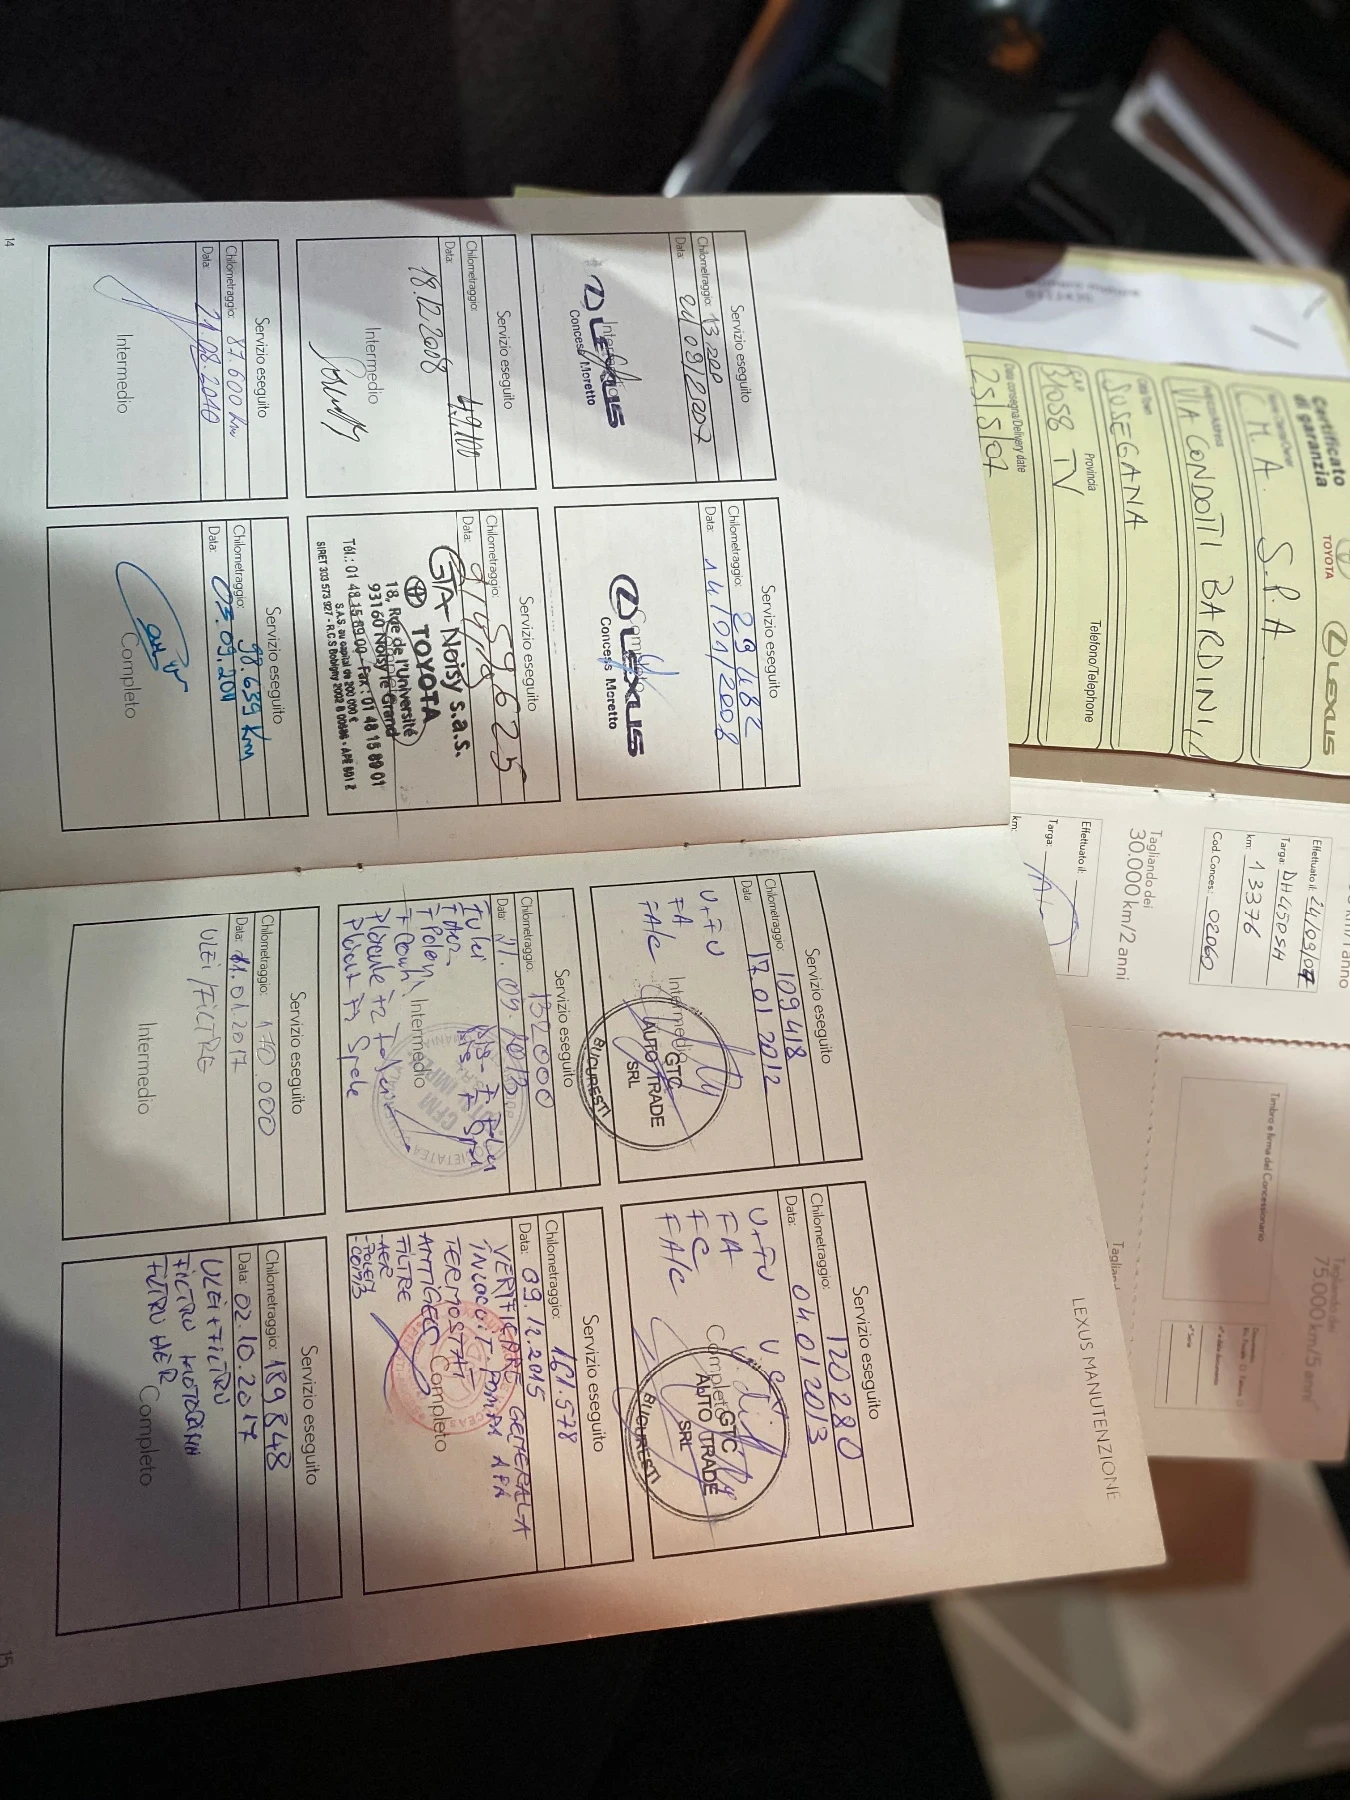 Servizio eseguito
Chilometraggio: 13.200
Data: 24/09/2007
LEXUS
Concess. Moretto
Servizio eseguito
Chilometraggio: 29482
Data: 14/01/2008
LEXUS
Concess Moretto
Servizio eseguito
Chilometraggio: 49.100
Data:
18.12.2008
Intermedio
Servizio eseguito
Chilometraggio: 59625
Data:
GTA Noisy s.a.s.
TOYOTA
18, Rue de l'Université
93160 Noisy le Grand
Tél.: 01 48 15 89 00 - Fax : 01 48 15 89 01
S.A.S. au capital de 200 000 €
SIRET 303 573 927 - R.C.S Bobigny 2002 B
Servizio eseguito
Chilometraggio: 87.600 km
Data: 21.08.2010
Intermedio
Servizio eseguito
Chilometraggio: 98.659 Km
Data: 03.09.2011
Completo
14
LEXUS MANUTENZIONE
Servizio eseguito
Chilometraggio: 109418
Data: 17.01.2012
U+FU
FA
FAlc
Intermedio
GTC
AUTO TRADE
SRL
BUCURESTI
Servizio eseguito
Chilometraggio: 120280
Data: 04.01.2013
U+FU
FA
FC
FAlc
Completo
GTC
AUTO TRADE
SRL
BUCURESTI
Servizio eseguito
Chilometraggio: 132000
Data: 2013
F Polen
Intermedio
Servizio eseguito
Chilometraggio: 161.578
Data: 09.12.2015
VERIFICARE GENERALA
INLOCUIT POMPA APA
TERMOSTAT
ANTIGEL
Completo
FILTRE
-AER
-POLEN
-COMB
Servizio eseguito
Chilometraggio: 170.000
Data: 11.01.2017
ULEI/FILTRE
Intermedio
Servizio eseguito
Chilometraggio: 189848
Data: 02.10.2017
ULEI+FILTRU
FILTRU MOTORINA
FILTRU AER
Completo
15
Certificato
di garanzia
TOYOTA
LEXUS
C.M.A. S.P.A.
VIA CONDOTTI BARDINI,
SUSEGANA
Provincia
Telefono/Telephone
31058 TV
Data consegna/Delivery date
25/5/07
Effettuato il: 24/09/07
Targa: DH450SH
km: 13376
Cod. Conces.: 02060
Tagliando dei
30.000 km/2 anni
Effettuato il:
Targa:
km:
Timbro e firma del Concessionario
Tagliando dei
75.000 km/5 anni